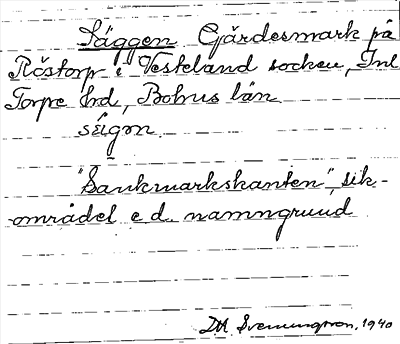 Säggen Gärdesmark på
Röstorp i Veskeland socken, Inl
Torpe hrd, Bohus län
sɛ̄gøn.
"Sankmarkskanten", sik-
området e d. namngrund
DM Svenningsson, 1940